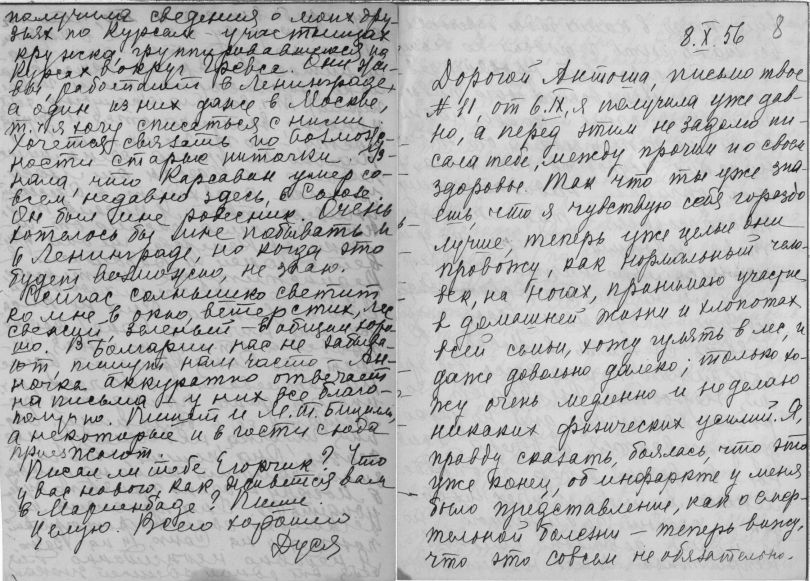 получила сведения о моих дру-
зьях по курсам – участницах
кружка, группировавшегося на
Курсах вокруг Гревса. Они жи-
вы, работают в Ленинграде,
а один из них даже в Москве,
т.ч. я хочу списаться с ними.
Хочется связать по возмож-
ности старые ниточки. Уз-
нала, что Карсавин умер со-
всем недавно здесь, в Союзе.
Он был мне ровесник. Очень
хотелось бы мне побывать и
в Ленинграде, но когда это
будет возможно, не знаю.
Сейчас солнышко светит
ко мне в окно, ветер стих, лес
свежий зеленый – в общем хоро-
шо. В Болгарии нас не забыва-
ют, пишут нам часто – Ан-
ночка аккуратно отвечает
на письма – у них все благо-
получно. Пишет и М.
а некоторые и в гости сюда
приезжают.
Писал ли тебе Егорчик? Что
у вас нового, как живется вам
в Мариенбаде? Пиши.
Целую. Всего хорошего
Дуся
8.X.56 8
Дорогой Антоша, письмо твое
№ 11, от 6.IX, я получила уже дав-
но, а перед этим не задолго пи-
сала тебе, между прочим и о своем
здоровье. Так что ты уже зна-
ешь, что я чувствую себя гораздо
лучше; теперь уже целые дни
провожу, как нормальный чело-
век, на ногах, принимаю участие
в домашней жизни и хлопотах
всей семьи, хожу гулять в лес, и
даже довольно далеко; только хо-
жу очень медленно и не делаю
никаких физических усилий. Я,
правду сказать, боялась, что это
уже конец, об инфаркте у меня
было представление, как о смер-
тельной болезни – теперь вижу,
что это совсем не обязательно.